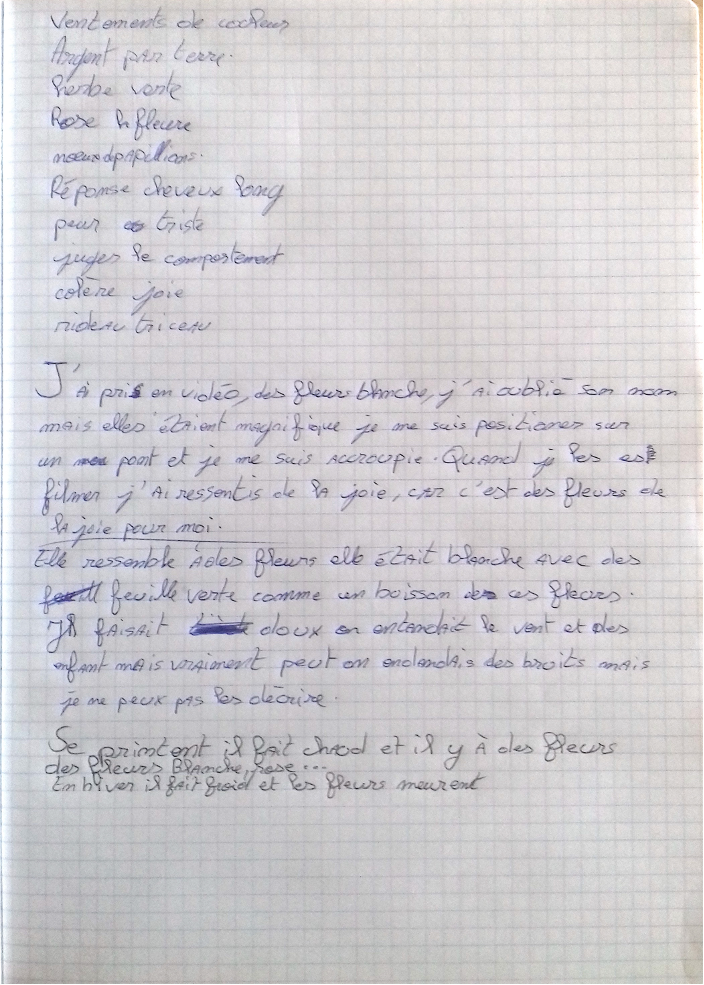 Ventements de couleur
Argent par terre.
herbe verte
Rose la fleure
noeuxdpapillions.
Réponse cheveux long
peur triste
juger le comportement
colère joie
rideau triceau
J'Ai pris en vidéo, des fleurs blanche, j'Ai oublié son nom
mais elles étaient magnifique je me suis positioner sur
un pont et je me suis accroupie. Quand j les est
filmer j'Ai ressentis de la joie, car c'est des fleurs de
la joie pour moi.
Elle ressemble à des fleurs elle était blanche avec des
feuille verte comme un boisson des ces fleurs.
Il faisait doux on entandait le vent et des
enfant mais vraiment peut on endandais des broits mais
je ne peux pas les décrire.
Se printent il fait chaod et il y à des fleurs
des fleurs Blanche, rose...
En hiver il fait froid et les fleurs meurent